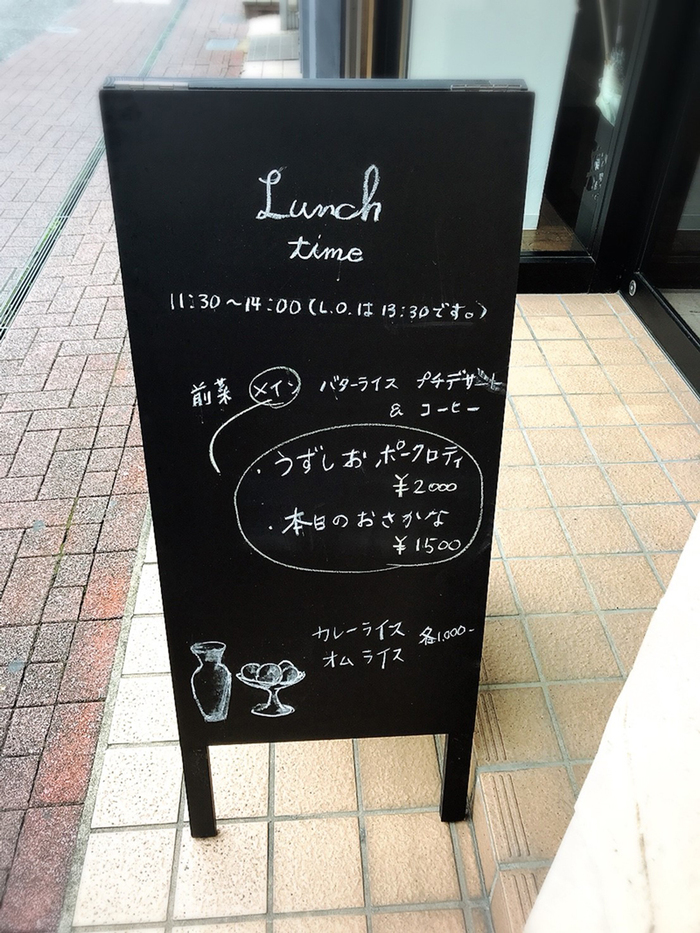 Lunch
time
11:30～14:00(L.O.は13:30です。)
前菜 メイン バターライス プチデザート
& コーヒー
・うずしおポークロティ
¥2000
・本日のおさかな
¥1500
カレーライス 各1,000-
オムライス